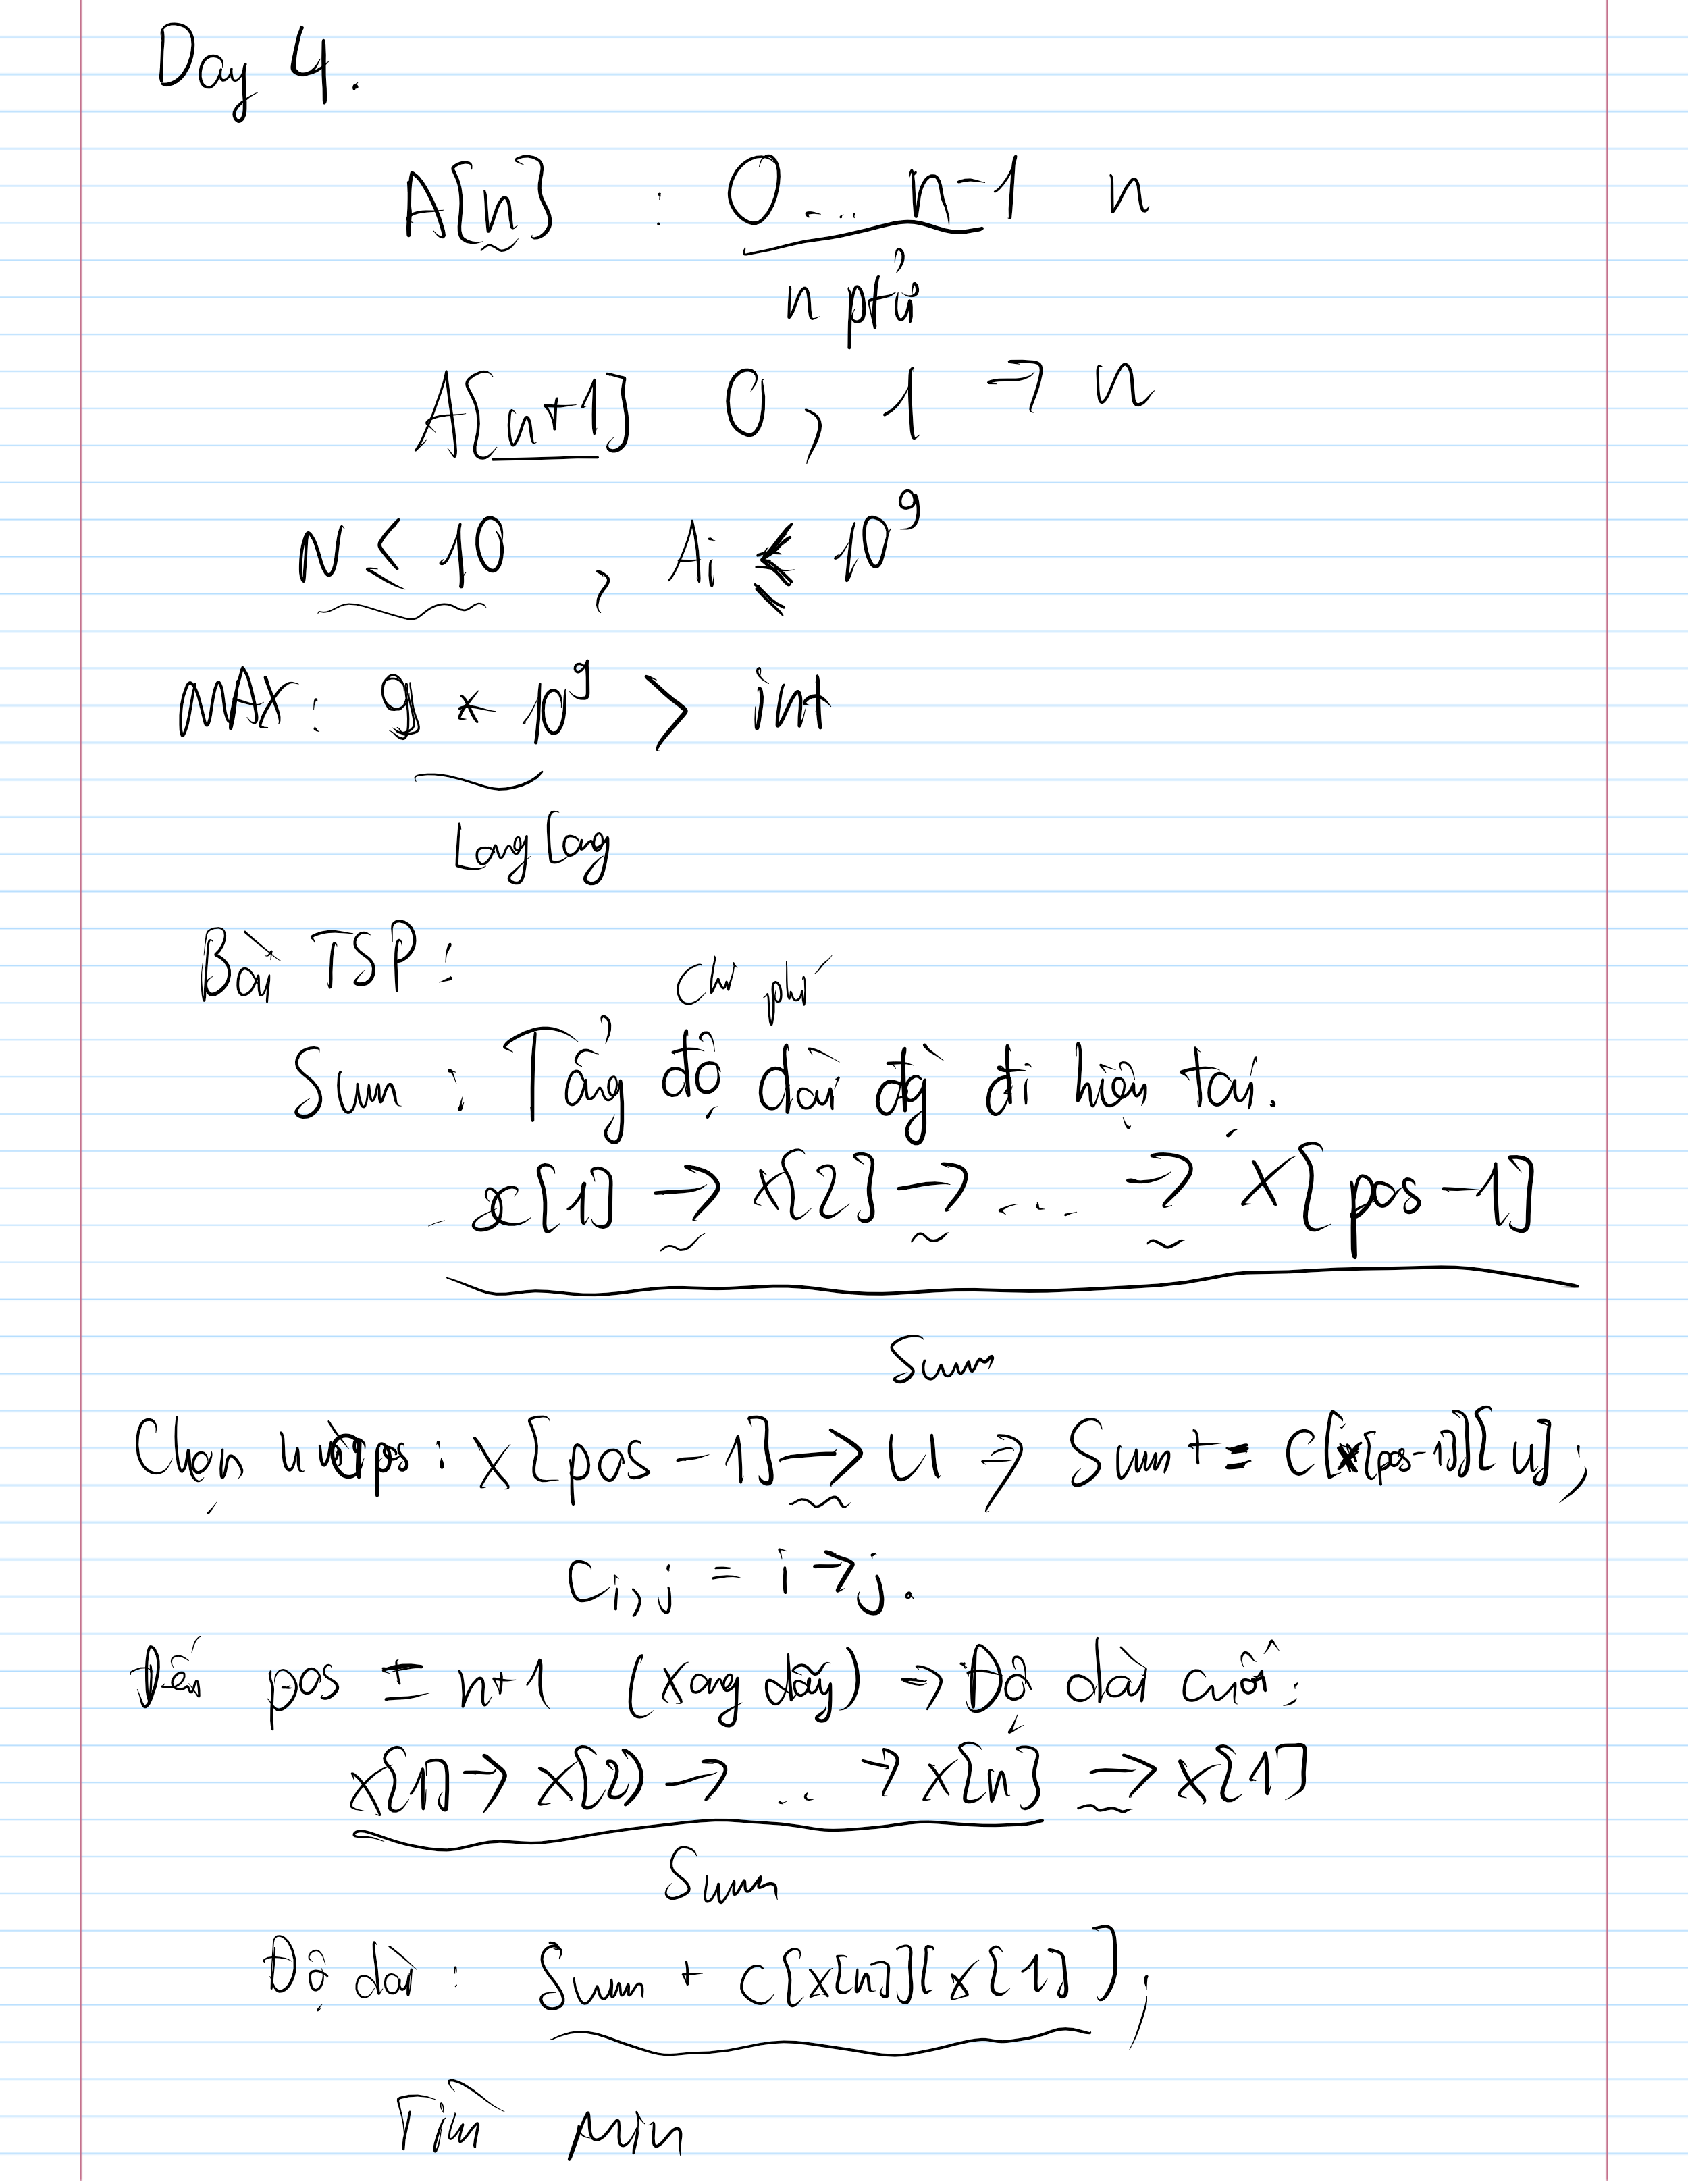 Day 4.
A[n] : 0 ... n-1 n
n ptử
A[n+1] 0, 1 → n
N ≤ 10 , Ai ≤ 10^9
MAX: 9 * 10^9 > int
Long Long
Bài TSP:
chi phí
Sum : Tổng độ dài đg đi hiện tại.
x[1] → x[2] → ... → x[pos-1]
Sum
Chọn u vào pos : x[pos-1] → u → Sum += C[x[pos-1]][u];
Ci,j = i → j.
Đến pos = n+1 (xong dãy) → Độ dài cuối:
x[1] → x[2] → .. → x[n] → x[1]
Sum
Độ dài : Sum + C[x[n]][x[1]];
Tìm Min